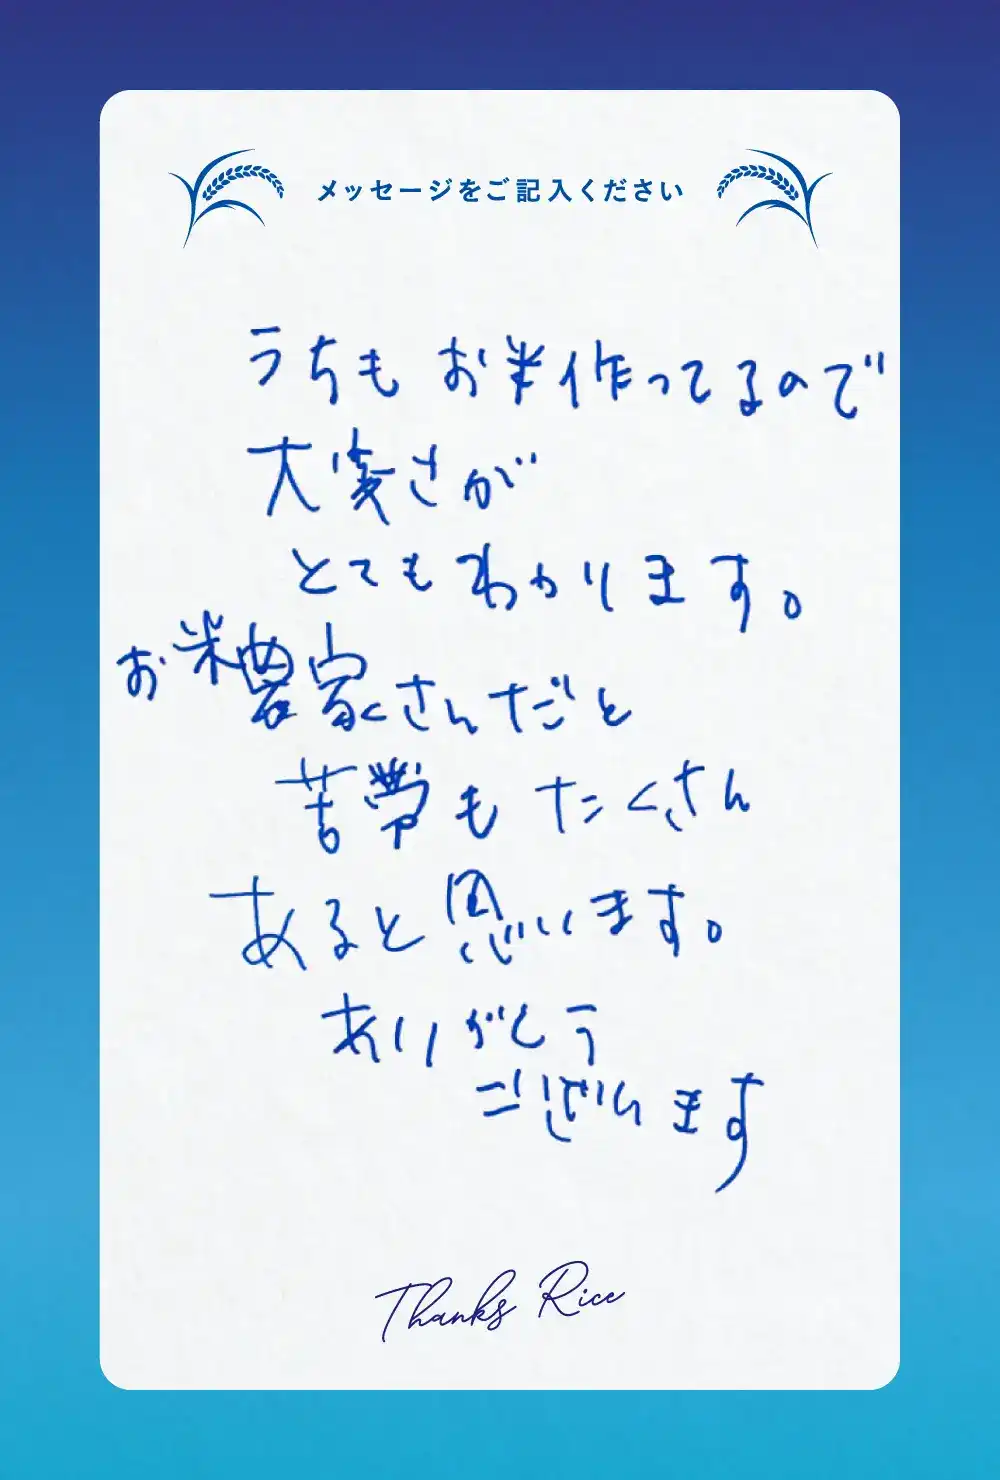 メッセージをご記入ください
うちもお米作ってるので
大変さが
とてもわかります。
お米農家さんだと
苦労もたくさん
あると思います。
ありがとう
ございます
Thanks Rice